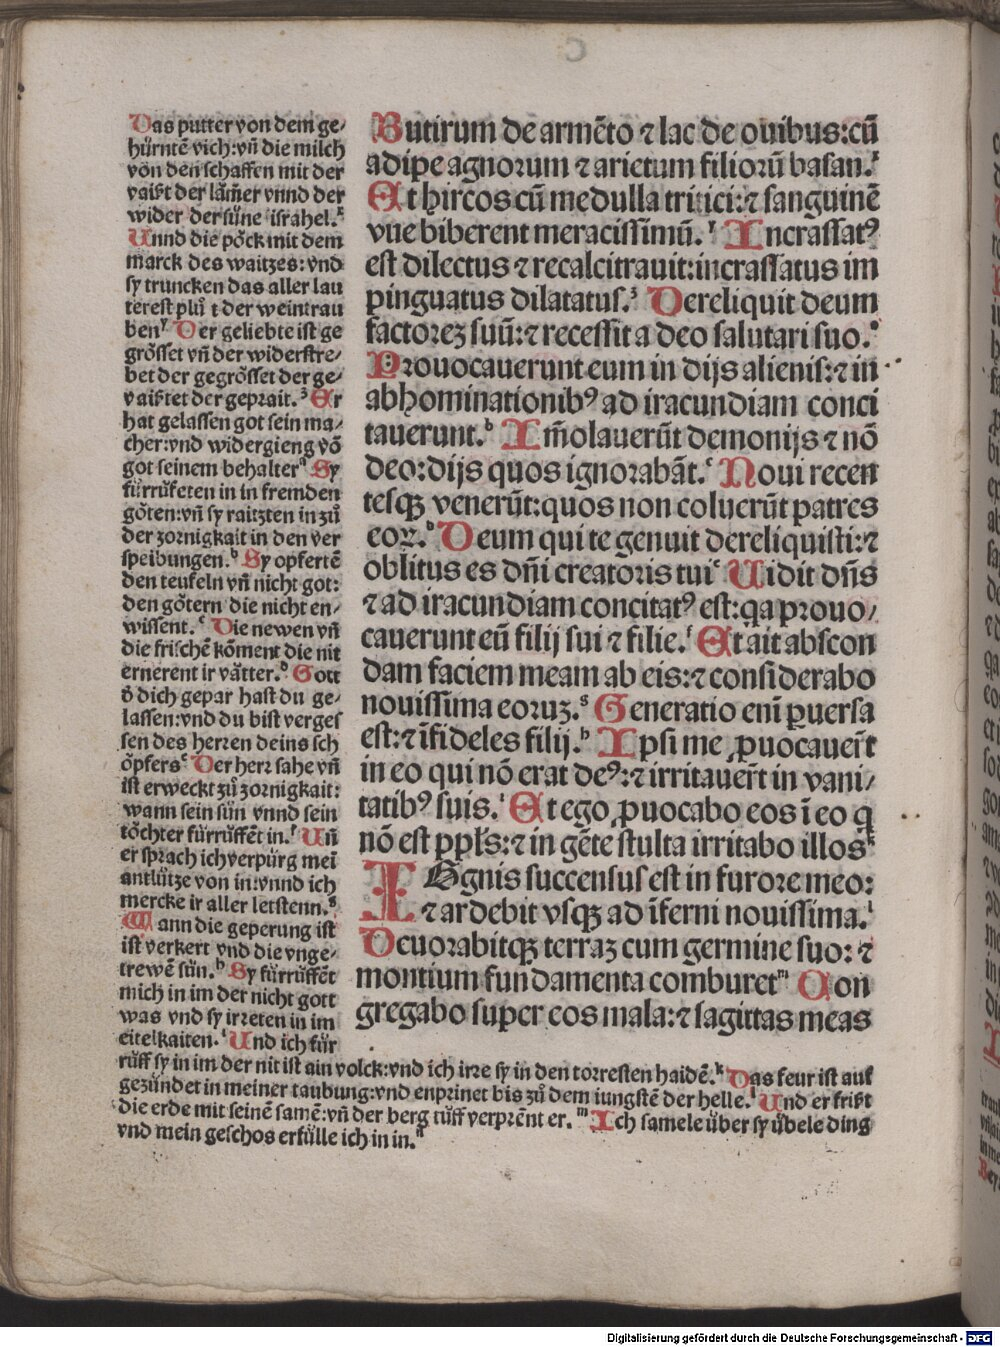 Das putter von dem ge-
hürntē vich: vñ die milch
von den schaffen mit der
vaißt der lām̄er vnnd der
wider der süne israhel.
Unnd die pöck mit dem
marck des waitzes: vnd
sy truncken das aller lau
terest plůt der weintrau
ben Der geliebte ist ge
grösset vñ der widerstre-
bet der gegrösset der ge-
vaißtet der geprait. Er
hat gelassen got sein ma-
cher: vnd widergieng vō
got seinem behalter Sy
fürrůfeten in in fremden
göten: vñ sy raitzten in zů
der zornigkait in den ver
speibungen. Sy opfertē
den teufeln vñ nicht got:
den götern die nicht en-
wissent. Die newen vñ
die frischē kōment die nit
ernerent ir vätter. Gott
ō dich gepar hast du ge-
lassen: vnd du bist verges
sen des herren deins sch
öpfers Der herr sahe vñ
ist erweckt zů zornigkait:
wann sein sün vnnd sein
töchter fürrůffēt in. Uñ
er sprach ich verpürg mei
antlütze von in: vnnd ich
mercke ir aller letstenn.
Wann die geperung ist
ist verkert vnd die vnge-
trewē sün. Sy fürrůffēt
mich in im der nicht gott
was vnd sy irreten in im
eitelkaiten. Und ich für
rüff sy in im der nit ist ain volck: vnd ich irre sy in den torresten haidē. Das feur ist auf
gezündet in meiner taubung: vnd enprinet bis zů dem iungstē der helle. Und er frißt
die erde mit seinē samē: vñ der berg tüff verprēnt er. Ich samele über sy übele ding
vnd mein geschos erfülle ich in in.
Butirum de armēto ⁊ lac de ouibus: cū
adipe agnorum ⁊ arietum filiorū basan.
Et hircos cū medulla tritici: ⁊ sanguinē
vue biberent meracissimū. Incrassatꝰ
est dilectus ⁊ recalcitrauit: incrassatus im
pinguatus dilatatus. Dereliquit deum
factorez suū: ⁊ recessit a deo salutari suo.
Prouocauerunt eum in dijs alienis: ⁊ in
abhominationibꝰ ad iracundiam conci
tauerunt. Im̄olauerūt demonijs ⁊ nō
deo: dijs quos ignorabāt. Noui recen
tesqꝫ venerūt: quos non coluerūt patres
eoꝝ. Deum qui te genuit dereliquisti: ⁊
oblitus es dñi creatoris tui Uidit dñs
⁊ ad iracundiam concitatꝰ est: qa prouo-
cauerunt eū filij sui ⁊ filie. Et ait abscon
dam faciem meam ab eis: ⁊ considerabo
nouissima eoruz. Generatio eni ꝑuersa
est: ⁊ īfideles filij. Ipsi me ꝓuocauer̄t
in eo qui nō erat deꝰ: ⁊ irritauer̄t in vani-
tatibꝰ suis. Et ego ꝓuocabo eos ī eo q
nō est ppl̄s: ⁊ in gēte stulta irritabo illos
IGgnis succensus est in furore meo:
⁊ ardebit vsqꝫ ad īferni nouissima.
Deuorabitqꝫ terraz cum germine suo: ⁊
montium fundamenta comburet Con
gregabo super eos mala: ⁊ sagittas meas
Digitalisierung gefördert durch die Deutsche Forschungsgemeinschaft - DFG